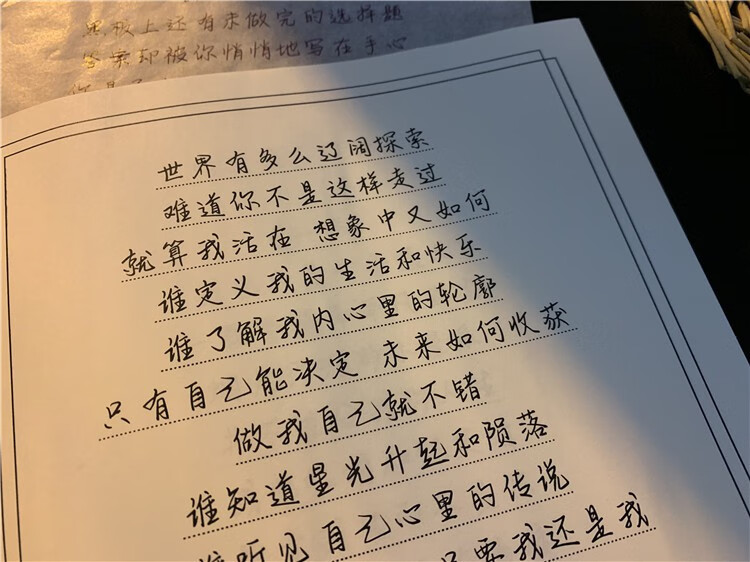 黑板上还有未做完的选择题
答案却被你悄悄地写在手心
你是
世界有多么辽阔探索
难道你不是这样走过
就算我活在 想象中又如何
谁定义我的生活和快乐
谁了解我内心里的轮廓
只有自己能决定 未来如何收获
做我自己就不错
谁知道星光升起和陨落
谁听见自己心里的传说
只要我还是我